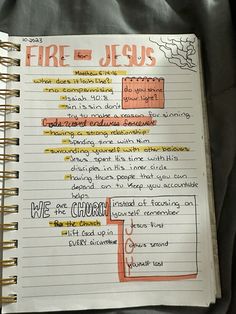 10-2023
FIRE for JESUS
Matthew 5:14-16
what does it look like?
- no compromising
- Isaiah 40:8
- an is sin don't
try to make a reason for sinning.
God's word endures forever!!
do you shine
your light?
- having a strong relationship
- Spending time with Him
- surrounding yourself with other believers
- Jesus spent His time with His
disciples in His inner circle
- having those people that you can
depend on to keep you accountable
helps
WE are the CHURCH
instead of focusing on
yourself remember
the Church
- Lift God up in
EVERY circumstance
Jesus first
others second
yourself last